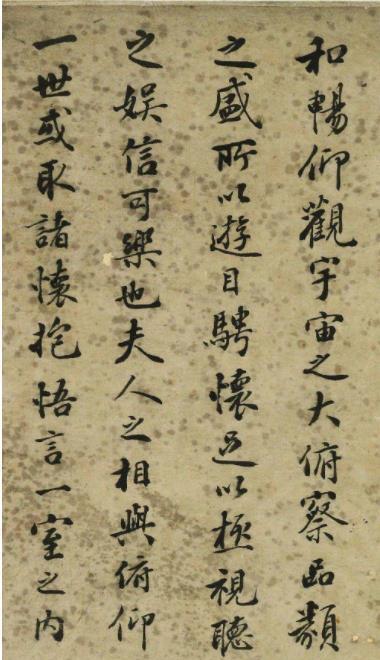 和暢仰觀宇宙之大俯察品類
之盛所以遊目騁懷足以極視聽
之娛信可樂也夫人之相與俯仰
一世或取諸懷抱悟言一室之內